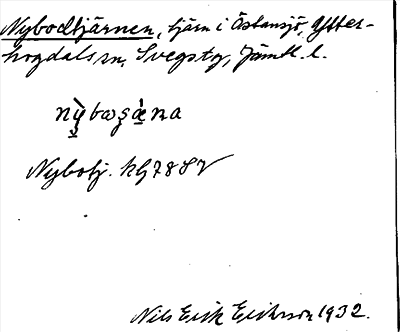 Nybodtjärnen, tjärn i Östansjö, Ytter-
hogdals sn, Svegs tg, Jämtl. l.
Nybotj. kG78SV
Nils Erik Eriksson 1932.